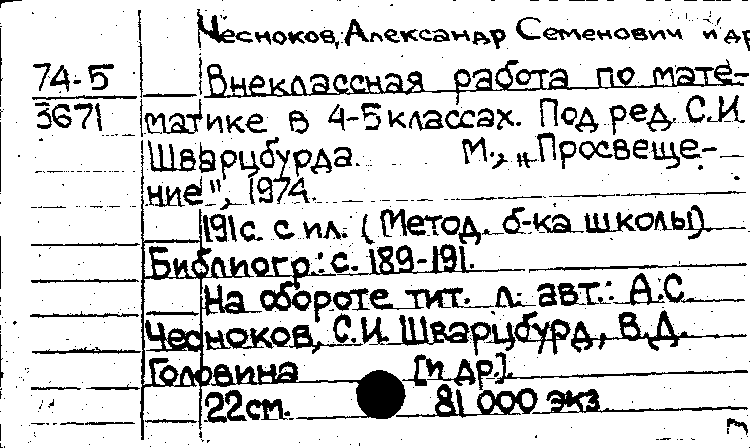 Чесноков, Александр Семенович и др
74-5 Внеклассная работа по мате-
3671 матике в 4-5 классах. Под ред. С.И.
Шварцбурда. М., „Просвеще-
ние", 1974.
191 с. с ил. (Метод. б-ка школы).
Библиогр.: с. 189-191.
На обороте тит. л. авт.: А.С.
Чесноков, С.И. Шварцбурд, В.Д.
Головина [и др.].
22см. 81 000 экз